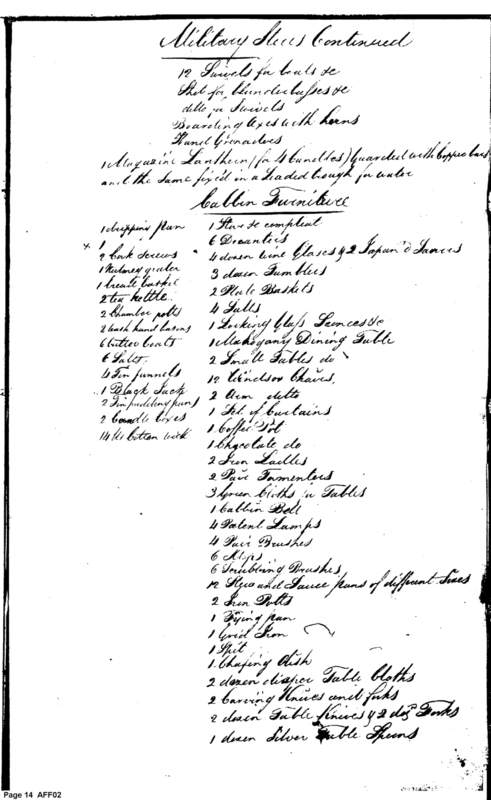 Military Stores Continued
12 Swivels for boats &c
Shot for blunderbusses &c
ditto for Swivels
Boarding Axes with horns
Hand Grenadoes
1 Magazine Lanthern (for 4 Candles) Guarded with Copper bars
and the same fixed in a Leaded trough for water
Cabbin Furniture
1 dripping pan
x 1
2 Cork Screws
1 Nutmeg grater
1 bread basket
2 tea kettle
2 Chamber potts
2 wash hand basons
6 butter boats
6 Salts
4 Tin funnels
1 Black Jack
2 Tin pudding pans
2 Candle boxes
14 lb Cotton wick
1 Stove &c compleat
6 Decanters
4 dozen wine Glases & 2 Japan'd
3 dozen Tumblers
2 Plate Baskets
4 Salts
1 Looking Glass Sconces &c
1 Mahogany Dining Table
2 Small Tables do
12 Windsor Chairs
2 Arm ditto
1 Set of Curtains
1 Coffee Pot
1 Chocolate do
2 Iron Ladles
2 Pair Tormentors
3 Green Cloths for Tables
1 Cabbin Bell
4 Patent Lamps
4 Pair Brushes
6 Mops
6 Scrubbing Brushes
12 Stew and Sauce pans of different Sizes
2 Iron Potts
1 Frying pan
1 Grid Iron
1 Spit
1 Chafing dish
2 dozen diaper Table Cloths
2 Carving Knives and forks
2 dozen Table Knives & 2 doz Forks
1 dozen Silver Table Spoons
Page 14 AFF02